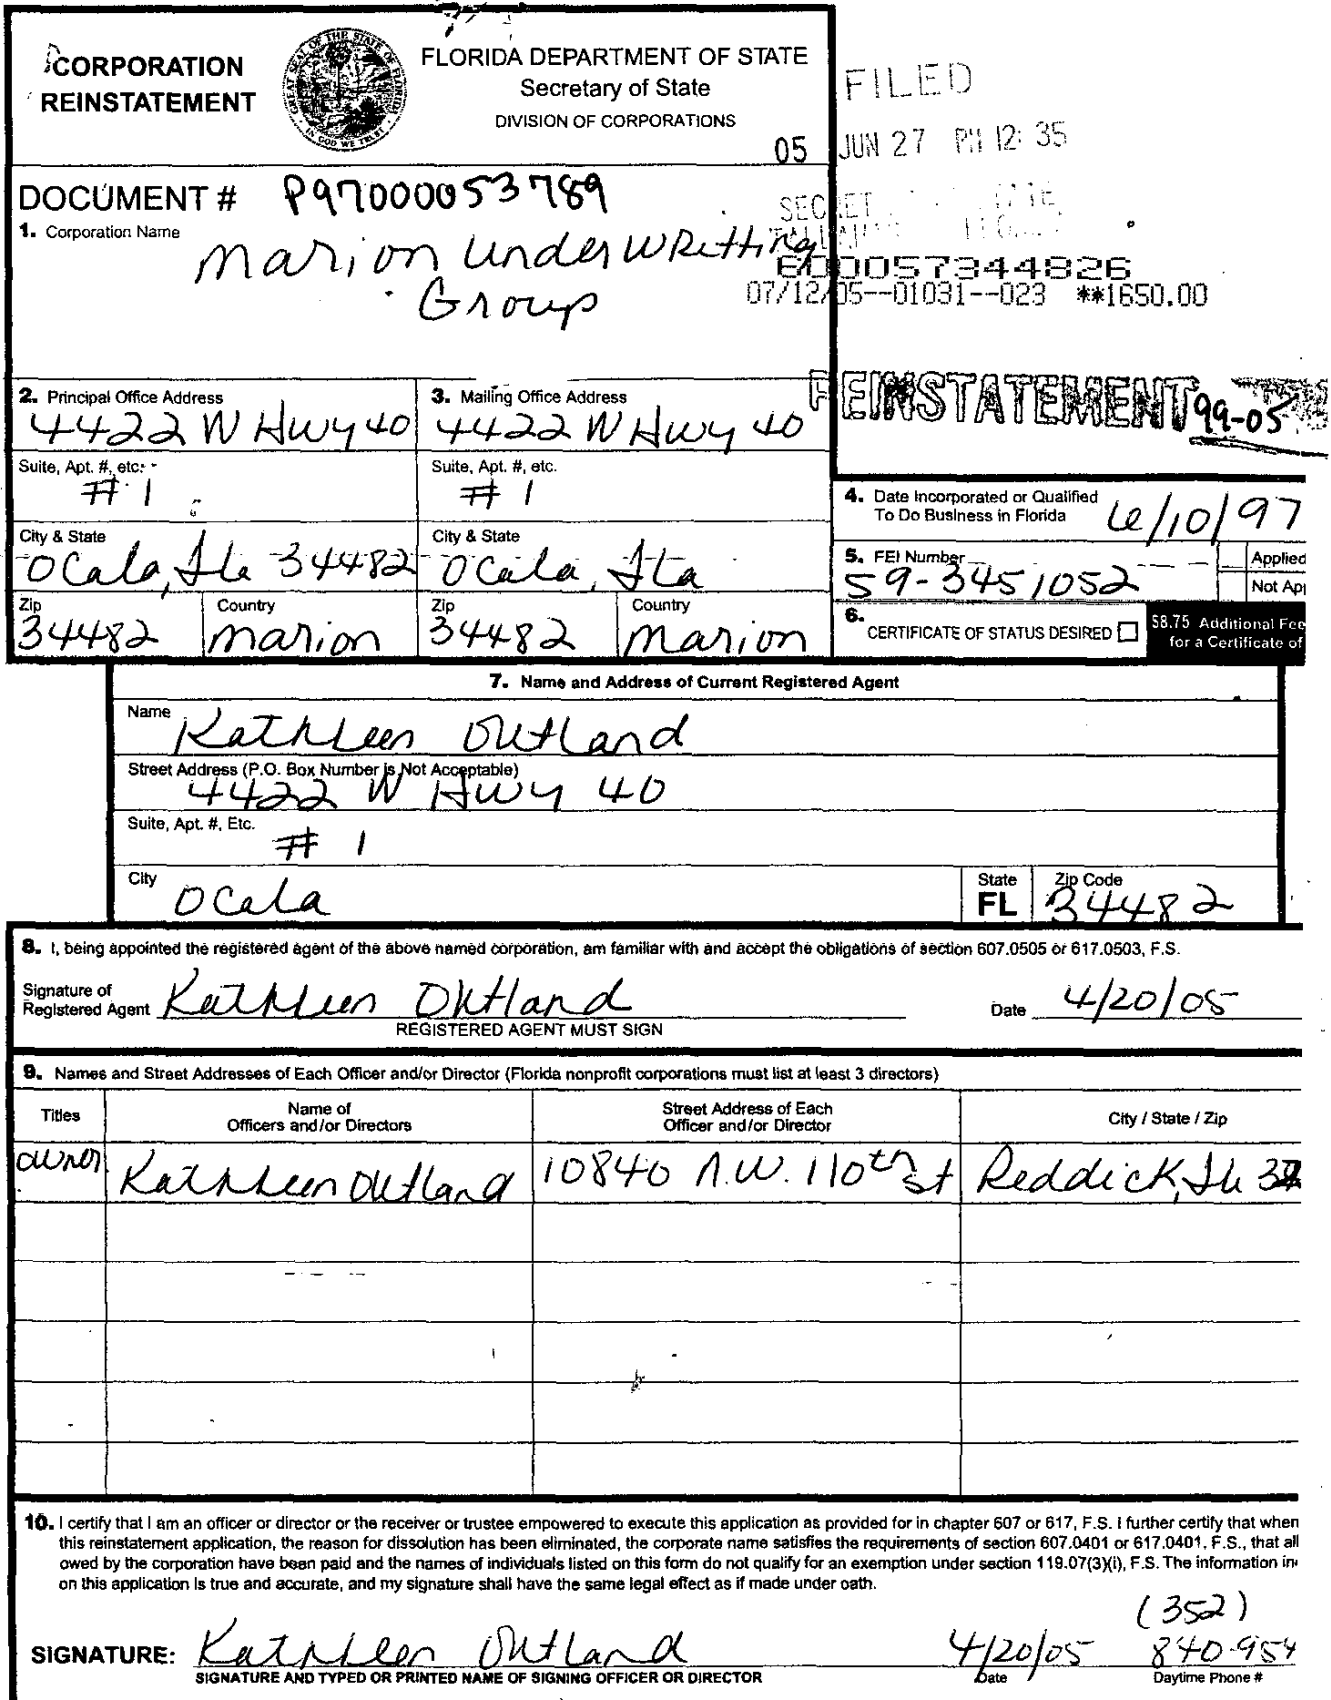 CORPORATION
REINSTATEMENT
GREAT SEAL OF THE STATE OF FLORIDA
IN GOD WE TRUST
FLORIDA DEPARTMENT OF STATE
Secretary of State
DIVISION OF CORPORATIONS
FILED
05 JUN 27 PM 12: 35
DOCUMENT # P97000053789
1. Corporation Name
Marion UnderWRitting
Group
600057344826
07/12/05--01031--023 **1650.00
REINSTATEMENT 99-05
2. Principal Office Address
4422 W Hwy 40
3. Mailing Office Address
4422 W Hwy 40
Suite, Apt. #, etc.
# 1
Suite, Apt. #, etc.
# 1
City & State
Ocala, Fla 34482
City & State
Ocala, Fla
Zip
34482
Country
Marion
Zip
34482
Country
Marion
4. Date Incorporated or Qualified
To Do Business in Florida
6/10/97
5. FEI Number
59-3451052
Applied
Not Ap
6. CERTIFICATE OF STATUS DESIRED
$8.75 Additional Fee
for a Certificate of
7. Name and Address of Current Registered Agent
Name
Kathleen Outland
Street Address (P.O. Box Number is Not Acceptable)
4422 W Hwy 40
Suite, Apt. #, Etc.
# 1
City
Ocala
State
FL
Zip Code
34482
8. I, being appointed the registered agent of the above named corporation, am familiar with and accept the obligations of section 607.0505 or 617.0503, F.S.
Signature of
Registered Agent Kathleen Outland
Date 4/20/05
REGISTERED AGENT MUST SIGN
9. Names and Street Addresses of Each Officer and/or Director (Florida nonprofit corporations must list at least 3 directors)
Titles
Name of
Officers and/or Directors
Street Address of Each
Officer and/or Director
City / State / Zip
owner
Kathleen Outland
10840 N.W. 110th St
Reddick, Fla
10. I certify that I am an officer or director or the receiver or trustee empowered to execute this application as provided for in chapter 607 or 617, F.S. I further certify that when
this reinstatement application, the reason for dissolution has been eliminated, the corporate name satisfies the requirements of section 607.0401 or 617.0401, F.S., that all
owed by the corporation have been paid and the names of individuals listed on this form do not qualify for an exemption under section 119.07(3)(i), F.S. The information in
on this application is true and accurate, and my signature shall have the same legal effect as if made under oath.
SIGNATURE: Kathleen Outland
4/20/05
(352)
840-954
SIGNATURE AND TYPED OR PRINTED NAME OF SIGNING OFFICER OR DIRECTOR
Date
Daytime Phone #